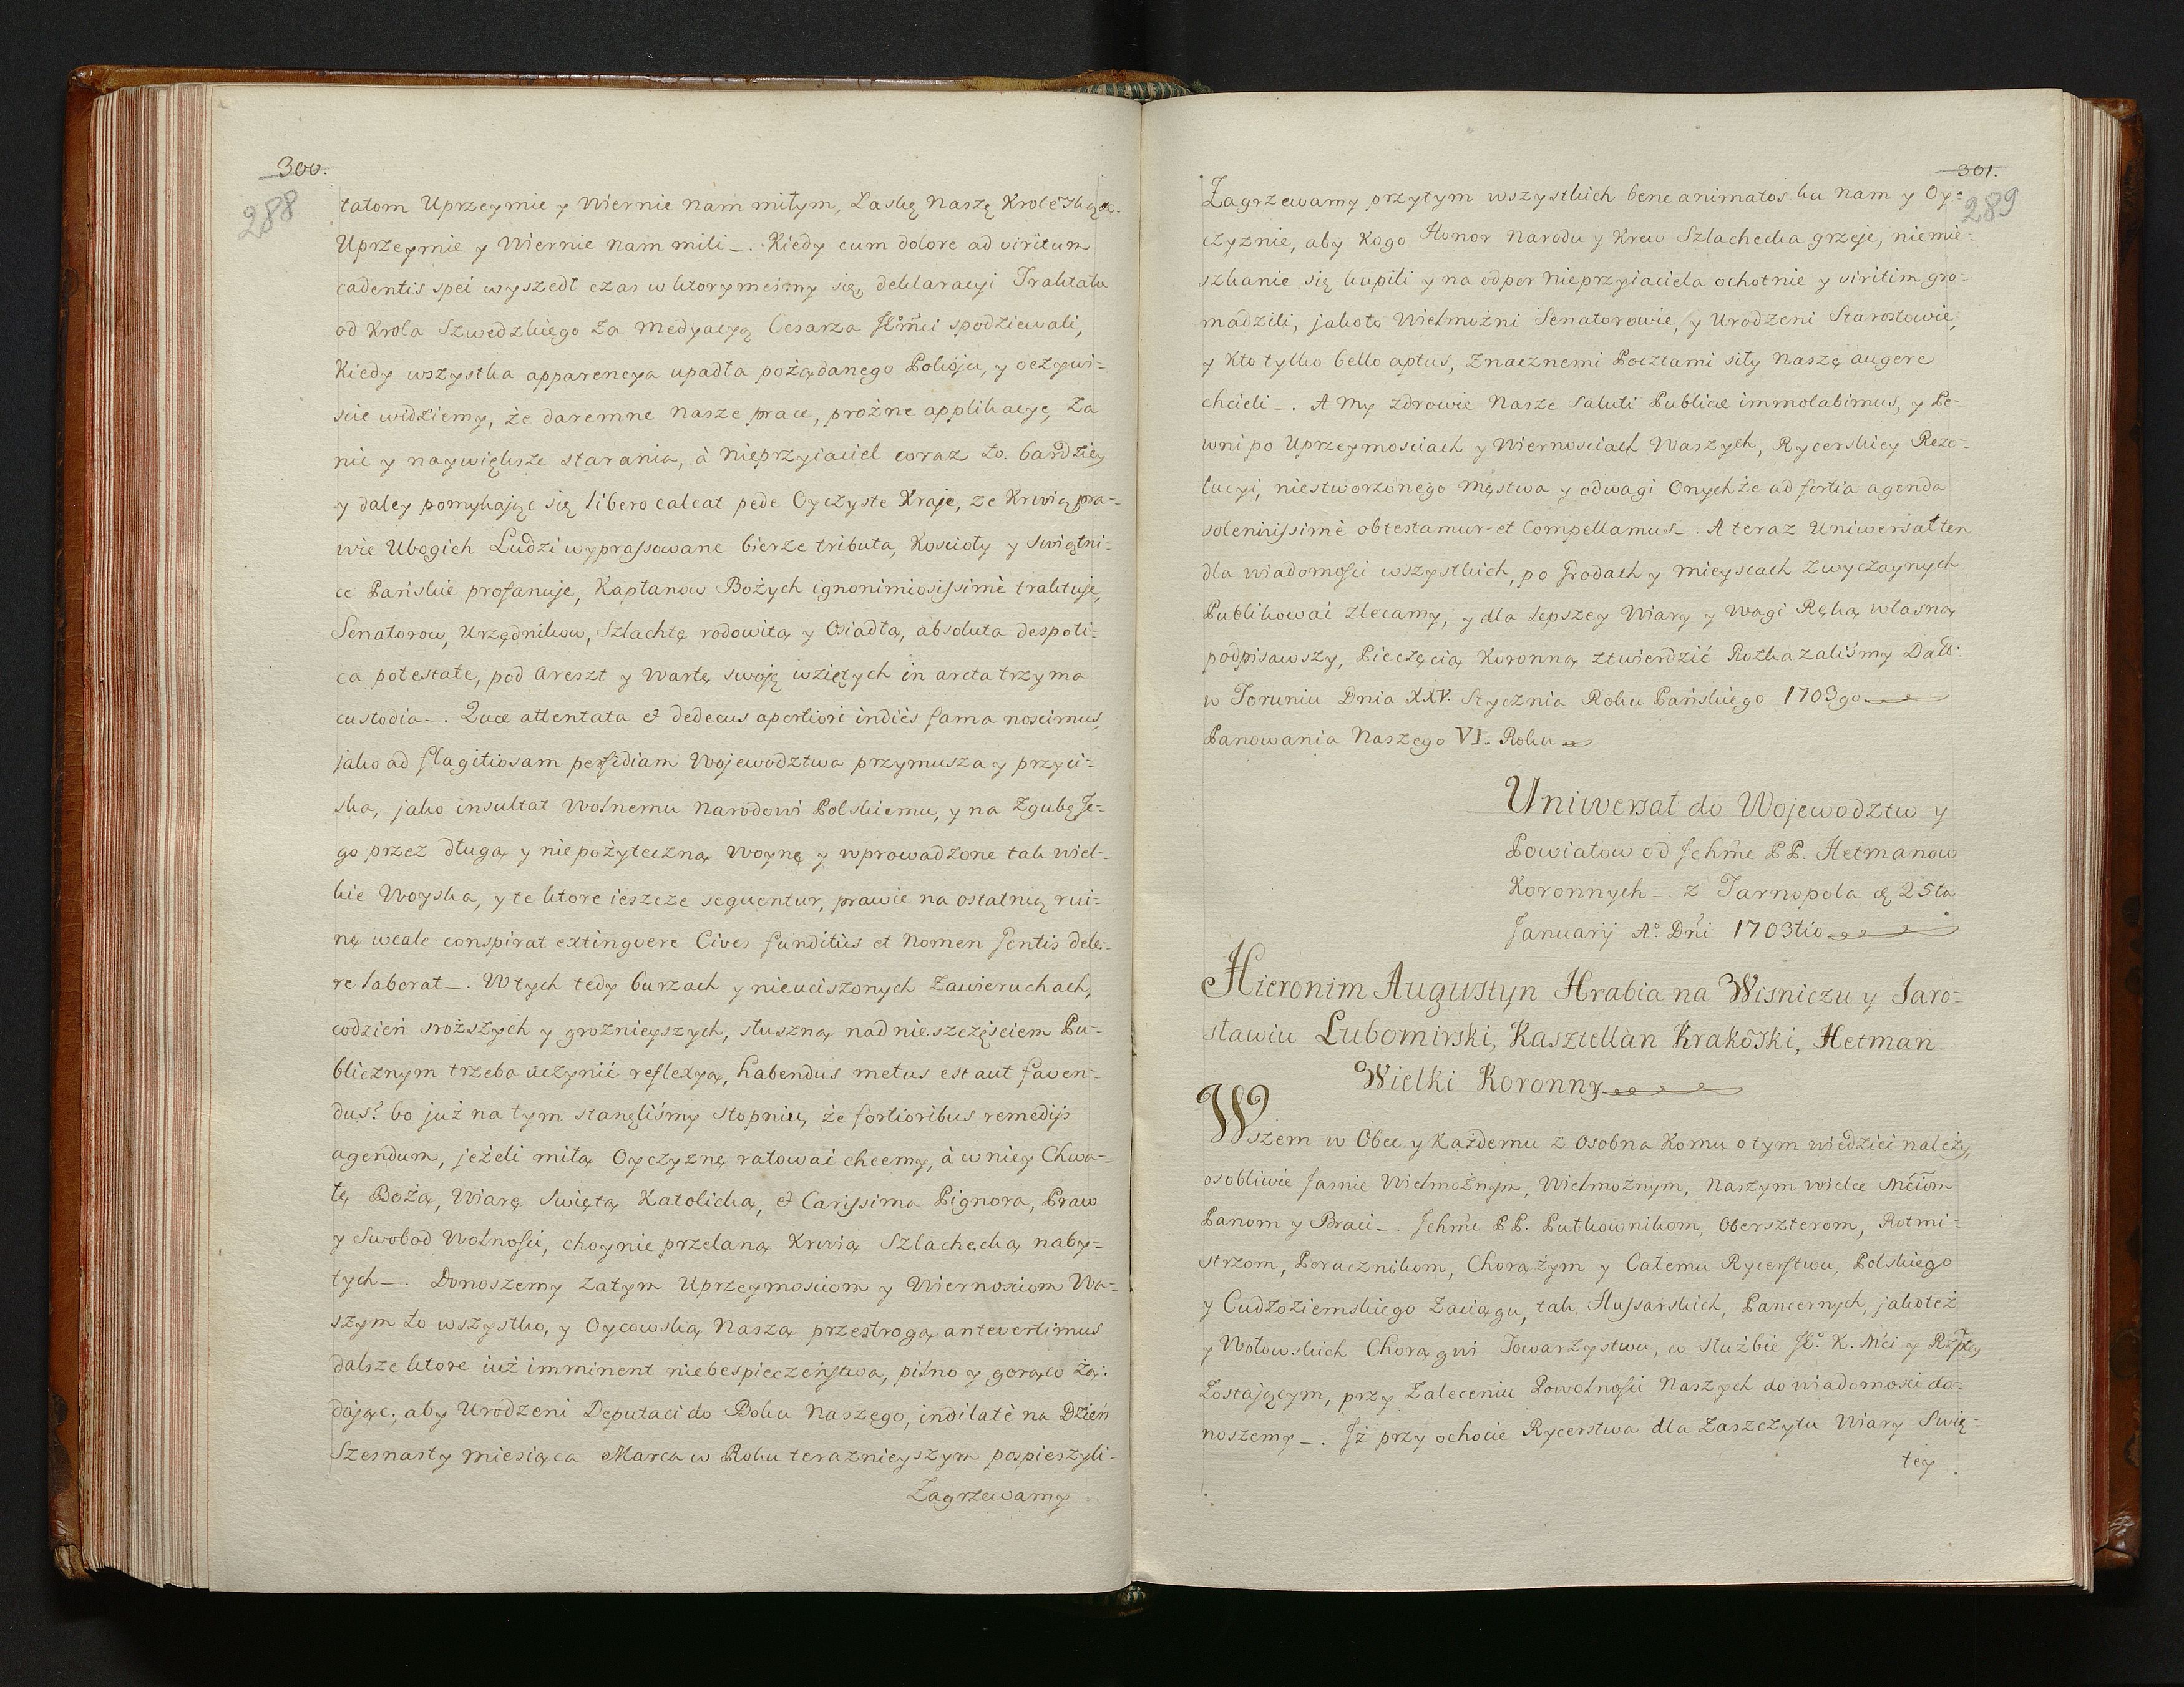 300.
288
tatom Uprzeymie y Wiernie nam miłym, Łaskę Naszę Krole͠ską.
Uprzeymie y Wiernie nam mili_. Kiedy cum dolore ad viritum
cadentis spei wyszedł czas w ktorymeśmy się deklaracyi Traktatu
od Krola Szwedzkiego za Medyacyą Cesarza JK͠mci spodziewali,
Kiedy wszystka apparencya upadła pożądanego Pokoju, y oczywi=
scie widziemy, że daremne nasze prace, prożne applikacye, za
nic y naywiększe starania, à Nieprzyiaciel coraz to bardziey
y daley pomykając się libero calcat pede Oyczyste Kraje, ze Krwią pra=
wie Ubogich Ludzi wyprassowane bierze tributa, Kościoły y Swiątni=
ce Pańskie profanuje, Kapłanow Bożych ignonimiosissimè traktuje,
Senatorow, Urzędnikow, Szlachtę rodowitą y Osiadłą, absoluta despoti=
ca potestate, pod Areszt y Wartę swoję wziętych in arcta trzyma
custodia_. Quæ attentata & dedecus apertiori indiès fama noscimus,
jako ad flagitiosam perfidiam Wojewodztwa przymusza y przyci=
ska, jako insultat Wolnemu Narodowi Polskiemu, y na Zgubę Je=
go przez długą y niepożyteczną Woynę y wprowadzone tak wiel=
kie Woyska, y te ktore ieszcze sequentur, prawie na ostatnią rui=
nę wcale conspirat extinguere Cives funditùs et Nomen Gentis dele=
re laborat_. W tych tedy burzach y nieuciszonych Zawieruchach,
codzień sroższych y groznieyszych, słuszną nad nieszczęściem Pu=
blicznym trzeba uczynić reflexyą, habendus metus est aut faven=
dus? bo już na tym stanęliśmy stopniu, że fortioribus remedijs
agendum, jeżeli miłą Oyczyznę ratować chcemy, à w niey Chwa=
łę Bożą, Wiarę Swiętą Katolicką, & Carissima Pignora, Praw
y Swobod Wolności, choynie przelaną Krwią Szlachecką naby=
tych_. Donoszemy zatym Uprzeymościom y Wiernościom Wa=
szym to wszystko, y Oycowską Naszą przestrogą antevertimus
dalsze ktore iuż imminent niebespieczeństwa, pilno y gorąco żą=
dając, aby Urodzeni Deputaci do Boku Naszego, indilatè na Dzień
Szesnasty Miesiąca Marca w Roku terazniejszym pospieszyli_
Zagrzewamy
301.
289
Zagrzewamy przytym wszystkich bene animatos ku nam y Oy=
czyznie, aby Kogo Honor Narodu y Krew Szlachecka grzeje, niemie=
szkanie się kupili y na odpor Nieprzyiaciela ochotnie y viritim gro=
madzili, jakoto Wielmożni Senatorowie, y Urodzeni Starostowie,
y Kto tylko bello aptus, znacznemi Pocztami siły Naszę augere
chcieli_. A My zdrowie Nasze Saluti Publicæ immolabimus, y Pe=
wni po Uprzeymościach y Wiernościach Waszych, Rycerskiey Rezo=
lucyi, niestworzonego męstwa y odwagi Onychże ad fortia agenda
solennissimè obtestamur et Compellamus_. A teraz Uniwersał ten
dla wiadomości wszystkich, po Grodach y mieyscach Zwyczaynych
Publikować zlecamy, y dla lepszey Wiary y Wagi Ręką własną
podpisawszy, Pieczęcią Koronną ztwierdzić Rozkazaliśmy Datt:
w Toruniu Dnia XXV. Stycznia Roku Pańskiego 1703go
Panowania Naszego VI. Roku
Uniwersał do Wojewodztw y
Powiatow od Jch͠me PP. Hetmanow
Koronnych_. z Tarnopola d. 25ta
Januarij A° D͠ni 1703tio
Hieronim Augustyn Hrabia na Wisniczu y Jaro=
sławiu Lubomirski, Kasztellan Krako͠ski, Hetman
Wielki Koronny
Wszem w Obec y Każdemu z Osobna Komu o tym wiedzieć należy,
osobliwie Jasnie Wielmożnym, Wielmożnym, Naszym wielce Mc͠iom
Panom y Braci_. Jch͠me PP. Pułkownikom, Oberszterom, Rotmi=
strzom, Porucznikom, Chorążym y Całemu Rycerstwu, Polskiego
y Cudzoziemskiego Zaciągu, tak Hussarskich, Pancernych, jakoteż
y Wołowskich Chorągwi Towarzystwu, w służbie JK°. K. Mci y Rzptey
zostającym, przy Zaleceniu Powolności Naszych do wiadomości do=
noszemy_. Jż przy ochocie Rycerstwa dla Zaszczytu Wiary Swię=
tey